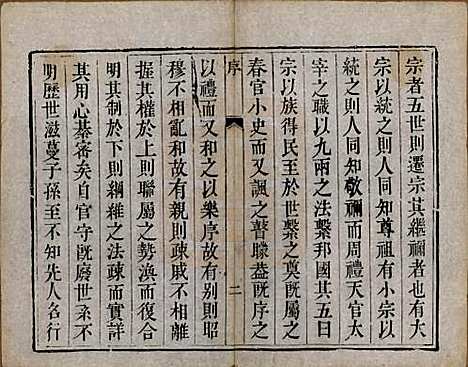 宗者五世則遷宗其繼禰者也有大
宗以統之則人同知尊祖有小宗以
統之則人同知敬禰而周禮天官太
宰之職以九兩之法繫邦國其五曰
宗以族得民至於世繫之奠既屬之
春官小史而又諷之瞽矇葢既序之
序
二
以禮而又和之以樂序故有别則昭
穆不相亂和故有親則疎戚不相離
握其權於上則聯屬之勢渙而復合
明其制於下則綱維之法疎而實詳
其用心綦審矣自官守既廢世系不
明歷世滋蔓子孫至不知先人名行